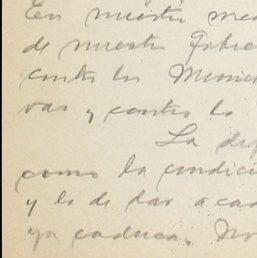 En nuestro me
de nuestro Gobie
contra los Mexic
vas y contra la
La de
como la condici
y lo de dar a ca
ya caduca. No